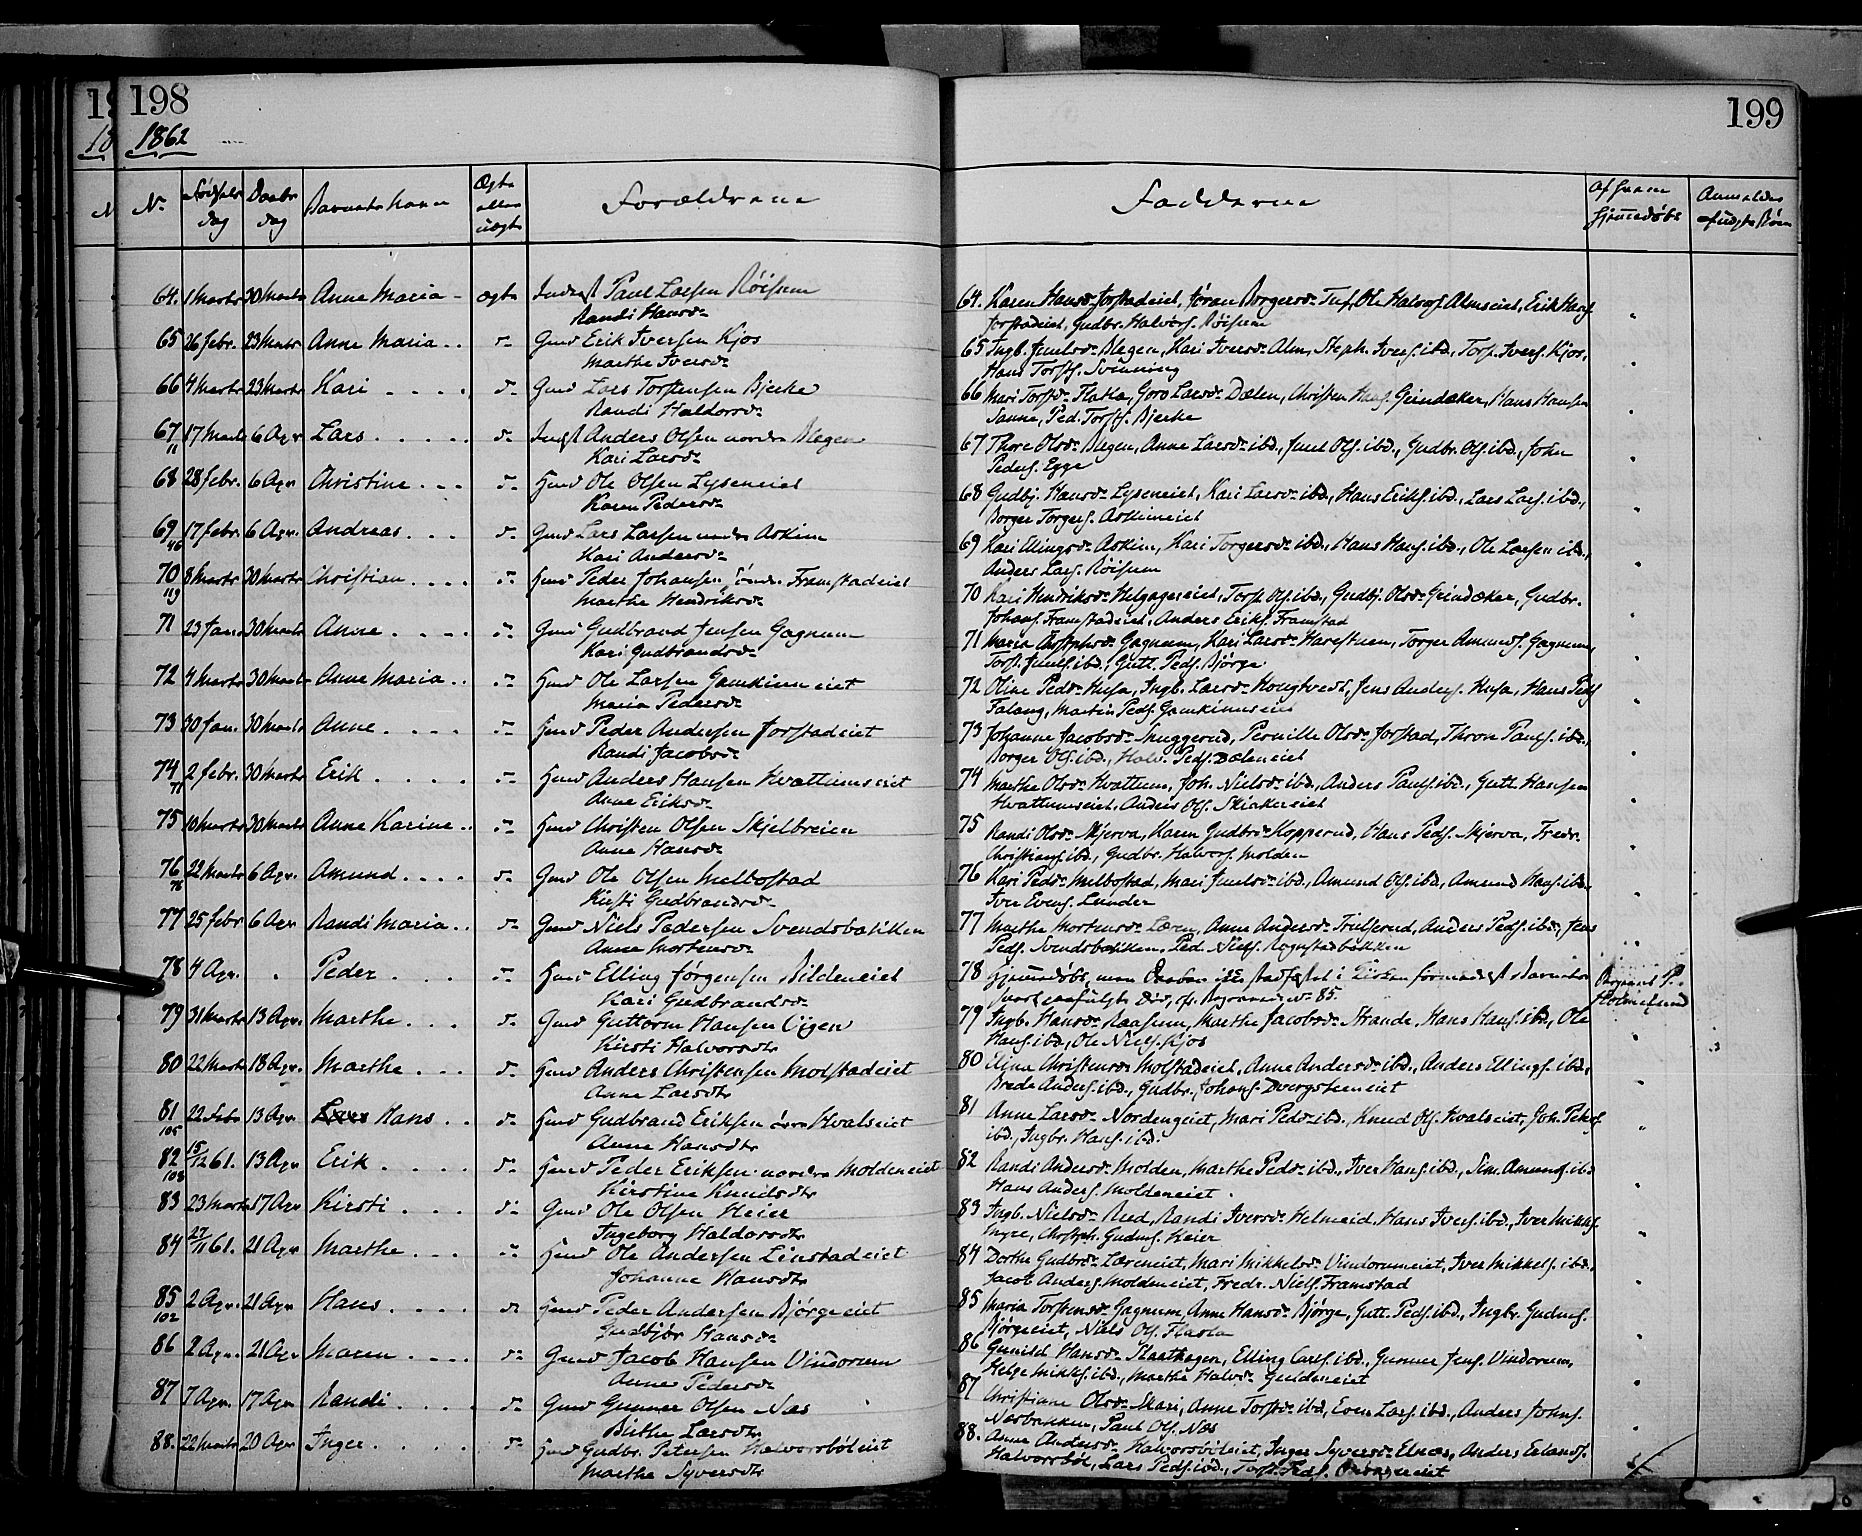 198
1862
No
Fødsels
dag
Daabs
dag
Barnets Navn
Ægte
eller
uægte
Forældrene
64. 1 Marts 30 Marts Anne Maria - ægte Inderst Paul Larsen Røisum
Randi Hansd.
65 26 Febr. 23 Marts Anne Maria . . d. Gmd Erik Iversen Kjos
Marthe Iversd.
66 4 Marts 23 Marts Kari . . . . d. Gmd Lars Torstensen Bjerke
Randi Haldorsd.
67 17 Marts 6 Apr Lars . . . . . d. Indst Anders Olsen nordre Blegen
11 Kari Larsd.
68 28 Febr. 6 Apr Christine . . . d. Hmd Ole Olsen Lyseneiet
Karen Pedersd.
69 17 Febr. 6 Apr. Andreas . . . d. Gmd Lars Larsen nedre Askim
46 Kari Andersd.
70 8 Marts 30 Marts Christian . . . . d. Hmd Peder Johansen søndre Framstadeiet
119 Marthe Henriksd.
71 23 Jan. 30 Marts Anne . . . . d. Gmd Gudbrand Jensen Gagnum
Kari Gudbrandsd.
72 4 Marts 30 Marts Anne Maria . . d. Hmd Ole Larsen Gamkinneiet
Maria Pedersd.
73 30 Jan. 30 Marts Anne . . . . d. Hmd Peder Andersen Jorstadeiet
Randi Jacobsd.
74 2 Febr. 30 Marts Erik . . . . d. Hmd Anders Hansen Hvattumseiet
Anne Eriksd.
75 10 Marts 30 Marts Anne Karine . . d. Hmd Christen Olsen Skjelbreien
Anne Hansd.
76 22 Marts 6 Apr. Amund . . . . d. Gmd Ole Olsen Melbostad
76 Kirsti Gudbrandsd.
77 25 Febr 6 Apr Randi Maria . . d. Gmd Niels Pedersen Svendsbakken
Anne Mortensd.
78 4 Apr. . Peder . . . d. Hmd Elling Jørgensen Bildeneiet
Kari Gudbrandsd.
79 31 Marts 13 Apr. Marthe . . . d. Gmd Guttorm Hansen Egen
Kirsti Halvorsdtr
80 22 Marts 18 Apr. Marthe . . . d. Hmd Anders Christensen Molstadeiet
Anne Larsdtr
81 22 Febr 13 Apr Lars Hans . . d. Hmd Gudbrand Eriksen øvre Hvalseiet
105 Anne Hansdtr
82 15/12 61. 13 Apr Erik . . . . d. Hmd Peder Eriksen nordre Moldeneiet
108 Kirstine Knudsdtr
83 23 Marts 17 Apr Kirsti . . . d. Gmd Ole Olsen Heier
Ingeborg Haldorsdtr
84 27/11 61. 21 Apr Marthe . . . d. Hmd Ole Andersen Linstadeiet
Johanne Hansdtr
85 2 Apr. 21 Apr Hans . . . . d. Hmd Peder Andersen Bjørgeeiet
102 Gudbjør Hansd.
86 2 Apr. 21 Apr Maren . . . d. Gmd Jacob Hansen Vindorum
Anne Pedersd.
87 7 Apr. 17 Apr Randi . . . . d. Gmd Gunner Olsen Næs
Birthe Larsdtr
88. 22 Marts 20 Apr Inger . . . . . d. Hmd Gudbr. Petersen Halvorsbøleiet
Marthe Syversdtr
199
Fadderne
Af hvem
hjemmedøbt
Anmeldte
64. Karen Hansd. Jorstadeiet, Jøran Borgersd. Ole Halvors. Almseiet, Erik Hans.
Jorstadeiet, Gudbr. Halvors. Røisum
65 Ingb. Juulsd. Blegen, Kari Iversd. Alm, Steph. Ivers. ibd., Torst. Ivers. Kjos,
Hans Torsts. Svinning
66 Mari Torstd. Flatla, Goro Larsd. Dælen, Christen Hans. Grindaker, Hans Hansen
Sanne, Ped. Torsts. Bjerke
67 Thore Olsd. Blegen, Anne Larsd. ibd., Juul Ols. ibd., Gudbr. Ols. ibd., John
Peders. Egge
68 Gudbj. Hansd. Lyseneiet, Kari Larsd. ibd., Hans Eriks. ibd., Lars Lars. ibd.,
Borger Torgers. Askimeiet
69 Kari Ellingsd. Askim, Kari Torgersd. ibd., Hans Hans. ibd., Ole Larsen ibd.,
Anders Lars. Røisum
70 Kari Henriksd. Helgagereiet, Torst. Ols. ibd., Gudbj. Olsd. Grindaker, Gudbr.
Johans. Framstadeiet, Anders Eriks. Framstad
71 Maria Chrstophd. Gagnum, Kari Larsd. Harestuen, Torger Amunds. Gagnum,
Torst. Juuls. ibd., Gutt. Peds. Bjørge
72 Oline Pedsd. Husa, Ingb. Larsd. Hougtvedt, Jens Anders. Husa, Hans Peds.
Falang, Martin Peds. Gamkinneiet
73 Johanne Jacobsd. Snuggerud, Pernille Olsd. Jorstad, Thron Pauls. ibd.,
Borger Ols. ibd., Halv. Peds. Dæleneiet
74 Marthe Olsd. Hvattum, Joh. Nielsd. ibd., Anders Pauls. ibd., Gutt. Hansen
Hvattumseiet, Anders Ols. Skiakereiet
75 Randi Olsd. Skjerva, Karen Gudbrd. Kopperud, Hans Peds. Skjerva, Fredr.
Christians. ibd., Gudbr. Halvors. Molden
76 Kari Pedsd. Melbostad, Mari Juulsd. ibd., Amund Ols. ibd., Amund Hans. ibd.,
Iver Evens. Lunder
77 Marthe Mortensd. Læren, Anne Andersd. Trulserud, Anders Peds. ibd., Jens
Peds. Svendsbakken, Ped. Niels. Rognstadbakken
78 Hjemmedøbt, men Daaben ikke stadfæstet i Kirken formedelst Barnets
snart paafulgte Død, cfr. Begravne No 85.
79 Ingb. Hansd. Raasum, Marthe Jacobsd. Strande, Hans Hans. ibd., Ole
Hans. ibd., Ole Niels. Kjos
80 Eline Christensd. Molstadeiet, Anne Andersd. ibd., Anders Ellings. ibd.,
Brede Anders. ibd., Gudbr. Johans. Dvergsteneiet
81 Anne Larsd. Nordengeiet, Mari Pedsd. ibd., Knud Ols. Hvalseiet, Joh. Peders.
ibd., Ingbr. Hans. ibd.
82 Randi Andersd. Molden, Marthe Pedsd. ibd., Iver Hans. ibd., Sim. Amunds. ibd.
Hans Anders. Moldeneiet.
83 Ingb. Nielsd. Rud, Randi Iversd. Helmeid, Hans Ivers. ibd., Iver Mikkels.
Myre, Chrstoph. Gudms. Heier
84 Dorthe Gudbrd. Læreneiet, Mari Mikkelsd. Vindorumeiet, Iver Mikkels. ibd.,
Jacob Anders. Moldeneiet, Fredr. Niels. Framstad
85 Maria Torstensd. Gagnum, Anne Hansd. Bjørge, Gutt. Peds. ibd., Ingbr. Gudms.
Bjørgeeiet, Niels Ols. Flatla
86 Gunild Hansd. Staathagen, Elling Carls. ibd., Gunner Jens. Vindorum,
Helge Mikkels. ibd., Marthe Halvd. Guldeneiet
87 Christiane Olsd. Skari, Anne Torstd. ibd., Even Lars. ibd., Anders Johns.
Næsbakken, Paul Ols. Næs
88. Anne Andersd. Halvorsbøleiet, Inger Syversd. Elnæs, Anders Erlands.
Halvorsbøl, Lars Peds. ibd., Torst. Peds.